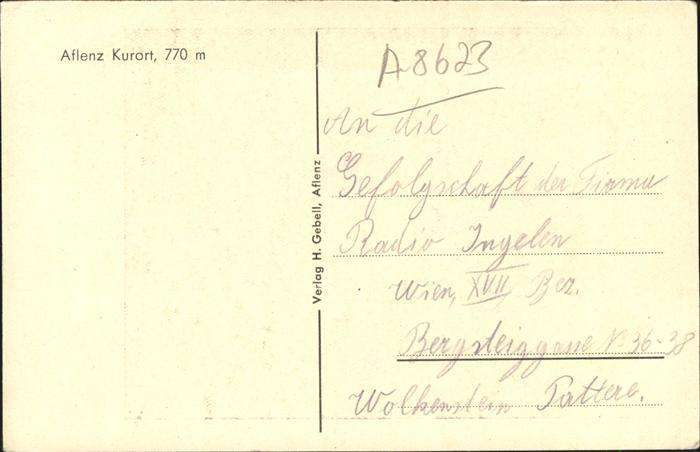 Aflenz Kurort, 770 m
Verlag H. Gebell, Aflenz
A 8623
An die
Gefolgschaft der Firma
Radio Ingelen
Wien, XVII Bez.
Bergsteiggasse No 36-38
Wolkenstein